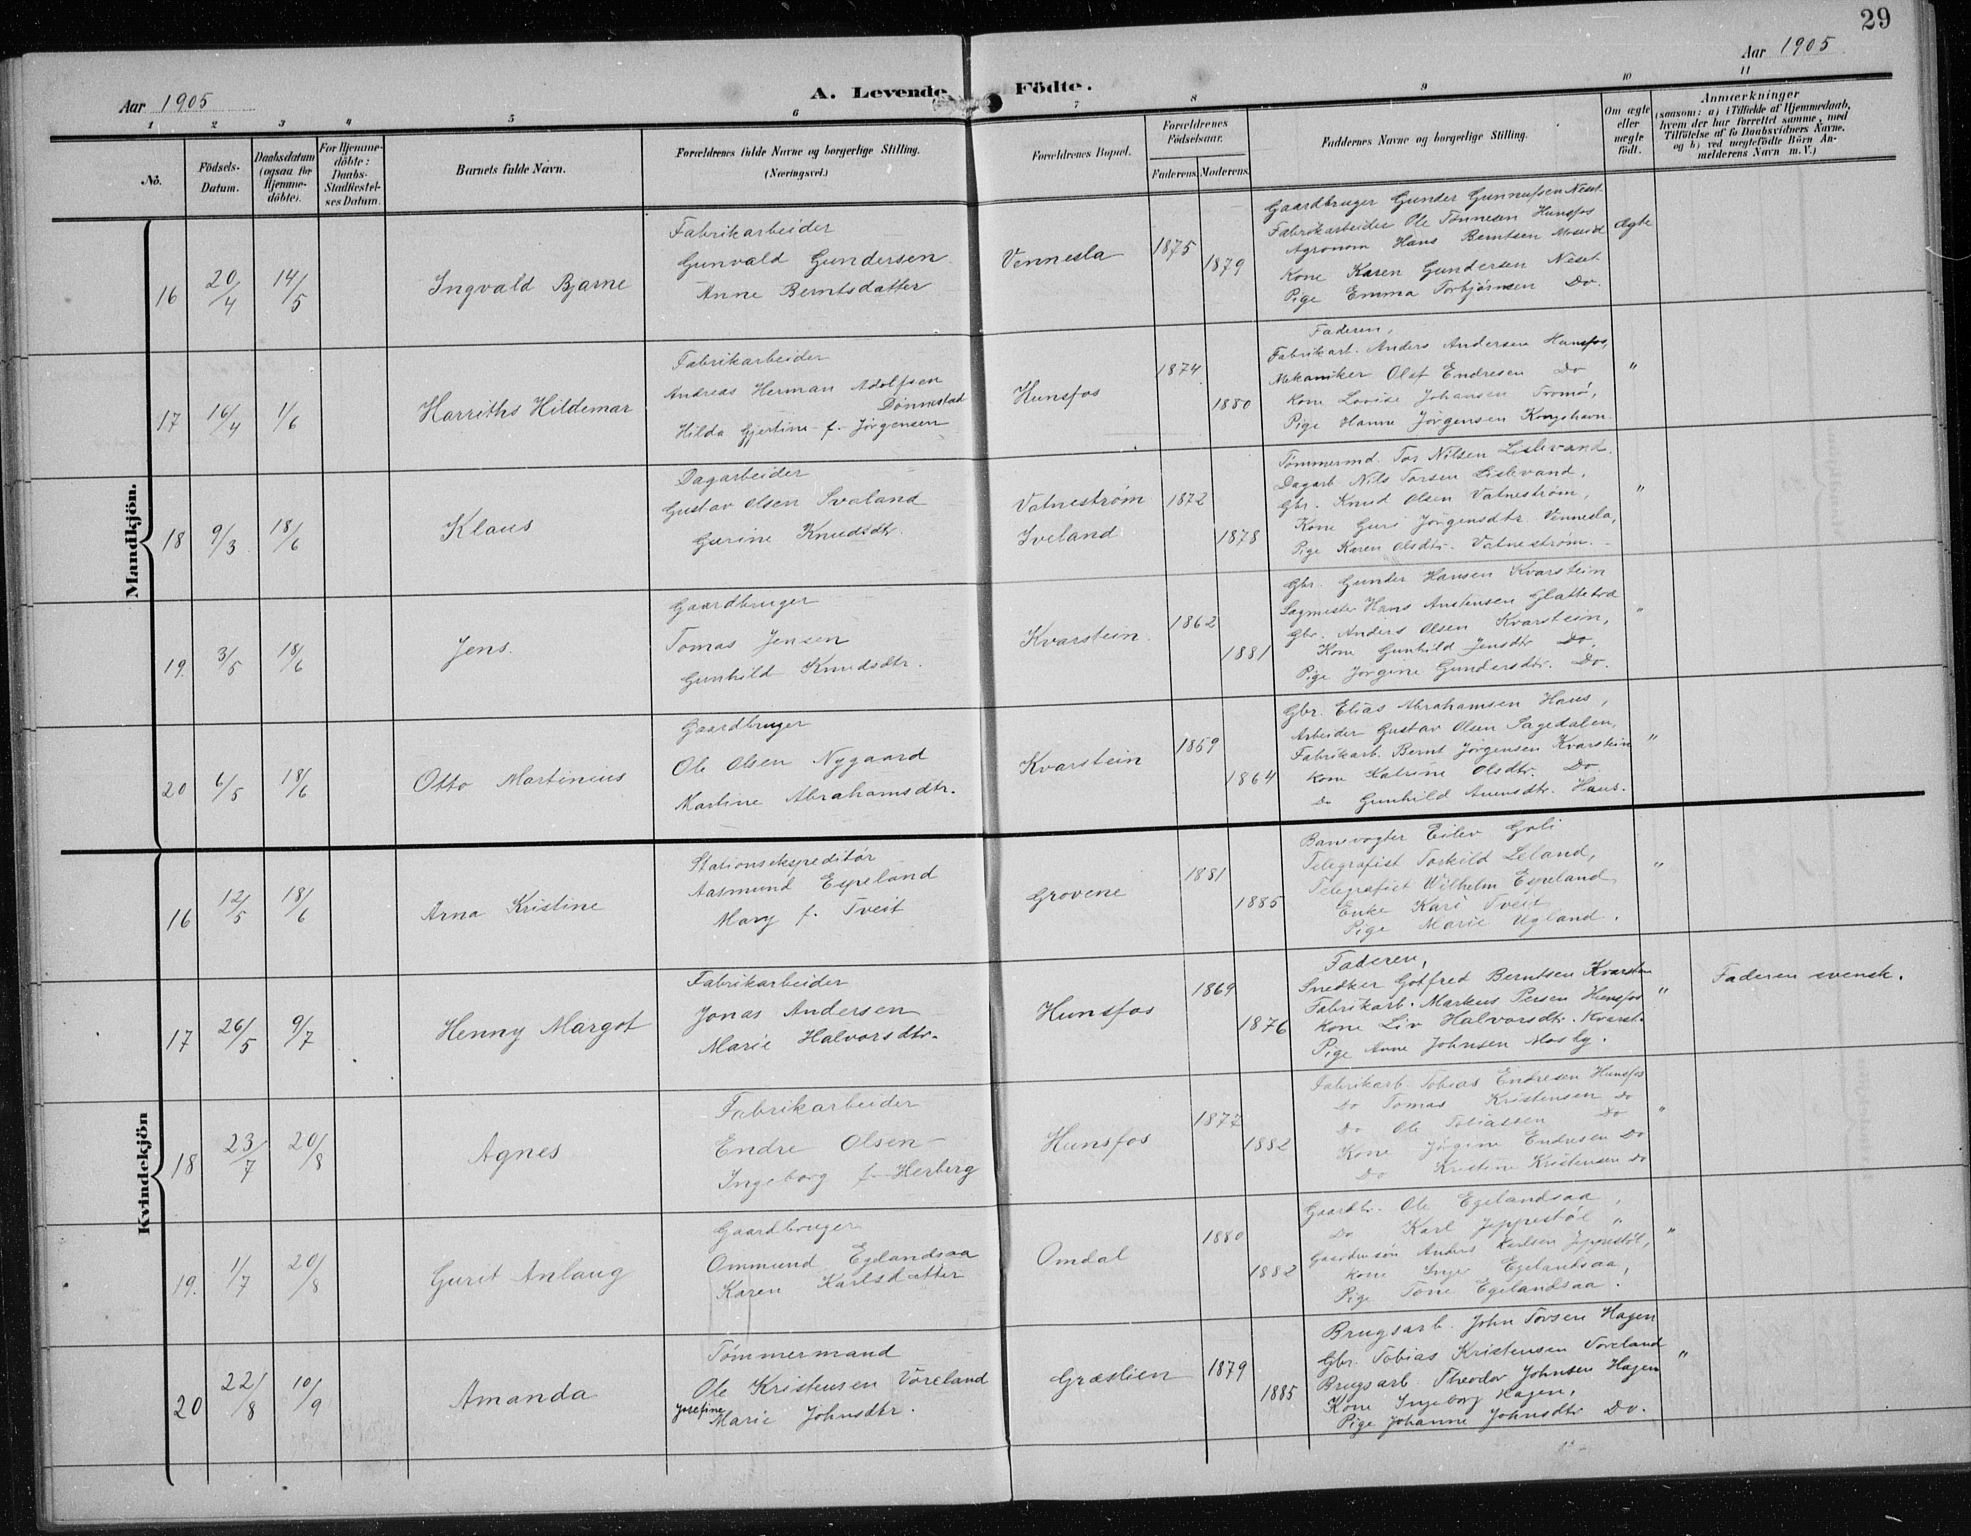 29
Aar 1905
Aar 1905
A. Levende Födte.
1 2 3 4 5 6 7 8 9 10 11
No.
Födsels-Datum.
Daabsdatum (ogsaa for Hjemme-döbte).
For Hjemme-döbte: Daabs-Stadfæstel-ses Datum.
Barnets fulde Navn.
Forældrenes fulde Navne og borgerlige Stilling.
(Næringsvei.)
Forældrenes Bopæl.
Forældrenes Födselsaar.
Faderens. Moderens.
Faddernes Navne og borgerlige Stilling.
Om ægte eller uægte födt.
Anmærkninger
(saasom: a) i Tilfælde af Hjemmedaab, hvem der har forrettet samme, med Tilföielse af to Daabsvidners Navne. og b) ved uægtefödte Börn An-melderens Navn m.V.)
Mandkjön.
16 20/4 14/5 Ingvald Bjarne
Fabrikarbeider
Gunvald Gundersen
Anne Berntsdatter
Vennesla 1875 1879
Gaardbruger Gunder Gunnufsen Neset
Fabrikarbeider Ole Tønnesen Hunsfos
Agronom Hans Berntsen Moseid
Kone Karen Gundersen Neset
Pige Emma Torbjørnsen Do.
Ægte
17 16/4 1/6 Harriths Hildemar
Fabrikarbeider
Andreas Herman Adolfsen
Dønnestad
Hilda Gjertine f. Jørgensen
Hunsfos 1874 1880
Faderen,
Fabrikarb. Anders Andersen Hunsfos,
Mekaniker Olaf Endresen Do
Kone Lovise Johansen Tromø,
Pige Hanne Jørgensen Kongshavn
"
18 9/3 18/6 Klaus
Dagarbeider
Gustav Olsen Svaland
Gurine Knudsdtr.
Vatnestrøm
Iveland
1872 1878
Tømmermd. Tor Nilsen Lislevand.
Dagarb Nils Torsen Lislevand,
Gbr. Knud Olsen Vatnestrøm,
Kone Guri Jørgensdtr Vennesla,
Pige Karen Olsdtr. Vatnestrøm.
"
19. 3/5 18/6 Jens.
Gaardbruger
Tomas Jensen
Gunhild Knudsdtr.
Kvarstein. 1862 1881
Gbr. Gunder Hansen Kvarstein
Sagmester Hans Anstensen Glattetræ
Gbr. Anders Olsen Kvarstein,
Kone Gunhild Jensdtr Do,
Pige Jørgine Gundersdtr. Do.
"
20 6/5 18/6 Otto Martinius
Gaardbruger
Ole Olsen Nygaard
Martine Abrahamsdtr.
Kvarstein 1859 1864
Gbr. Elias Abrahamsen Haus,
Arbeider Gustav Olsen Sagedalen,
Fabrikarb. Bernt Jørgensen Kvarstein
Kone Katrine Olsdtr. Do
Do Gunhild Auensdtr. Haus.
"
Kvindekjön
16 12/5 18/6 Arna Kristine
Stationsekspeditør
Aasmund Espeland
Mary f. Tveit
Grovene 1881 1885
Banevogter Eilev Goli
Telegrafist Torkild Leland,
Telegrafist Wilhelm Espeland,
Enke Kari Tveit
Pige Marie Ugland.
"
17 26/5 9/7 Henny Margot
Fabrikarbeider
Jonas Andersen
Marie Halvorsdtr.
Hunsfos 1869 1876
Faderen,
Snedker Gotfred Berntsen Kvarstein
Fabrikarb. Markus Persen Hunsfos
Kone Liv Halvorsdtr. Kvarst.
Pige Anne Johnsen Mosby.
"
Faderen svensk.
18 23/7 20/8 Agnes
Fabrikarbeider
Endre Olsen
Ingeborg f. Herberg
Hunsfos 1877 1882
Fabrikarb. Tobias Endresen Hunsfos
Do Tomas Kristensen Do
Do Ole Tobiassen Do
Kone Jørgine Endresen Do
Do Kristine Kristensen Do
"
19. 1/7 20/8 Gurit Anlaug
Gaardbruger
Ommund Egelandsaa
Karen Karlsdatter
Omdal 1880 1882
Gaardb. Ole Egelandsaa,
Do Karl Jeppestøl "
Gaardmsøn Anders Karlsen Jeppestøl,
Kone Inge Egelandsaa,
Pige Tone Egelandsaa.
"
20 22/8 10/9 Amanda
Tømmermand
Ole Kristensen Voreland
Josefine Marie Johnsdtr.
Græslien 1879 1885
Brugsarb. John Torsen Hagen
Gbr. Tobias Kristensen Voreland
Brugsarb. Theodor Johnsen Hagen
Kone Ingeborg Hagen,
Pige Johanne Johnsdtr Do.
"